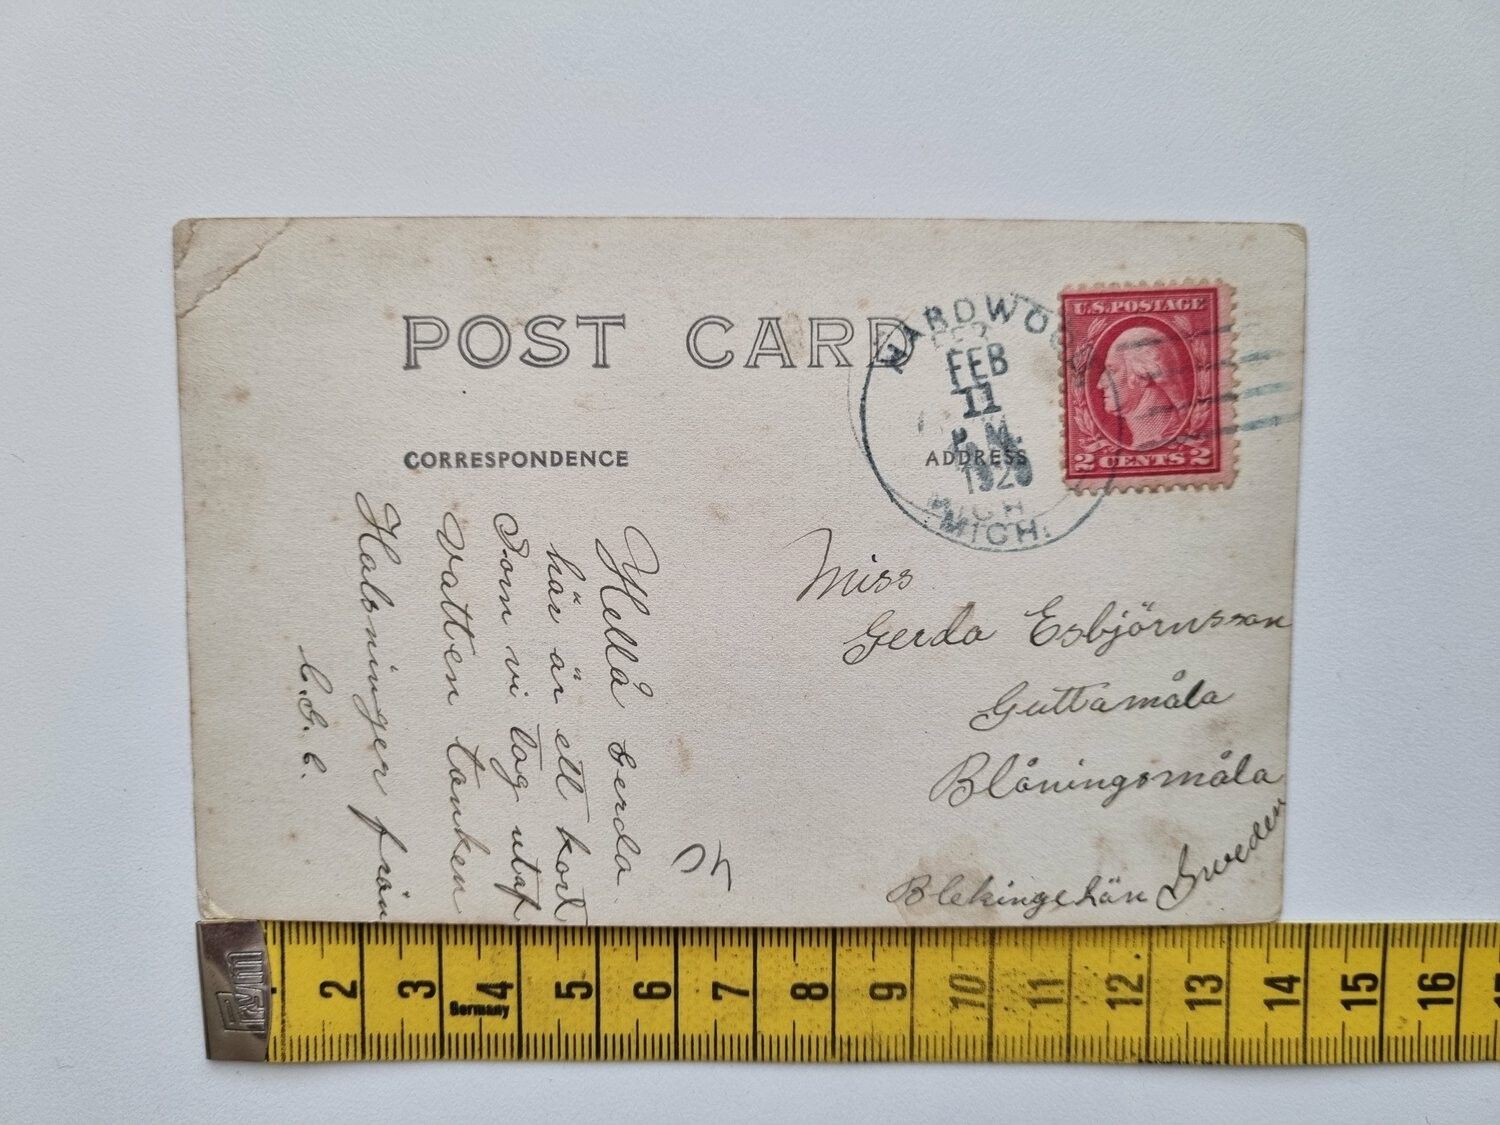 POST CARD
CORRESPONDENCE
ADDRESS
HARDWOOD
FEB
11
P.M.
MICH.
U.S. POSTAGE
2 CENTS 2
Hellå Gerda.
här är ett kort
Som vi tog utaf
vatten tanken
Halsninger från
C. G. C.
Miss
Gerda Esbjörnsson
Guttamåla
Blåningsmåla
Blekinge Län Sweden
2 3 4 5 6 7 8 9 10 11 12 13 14 15 16
Germany